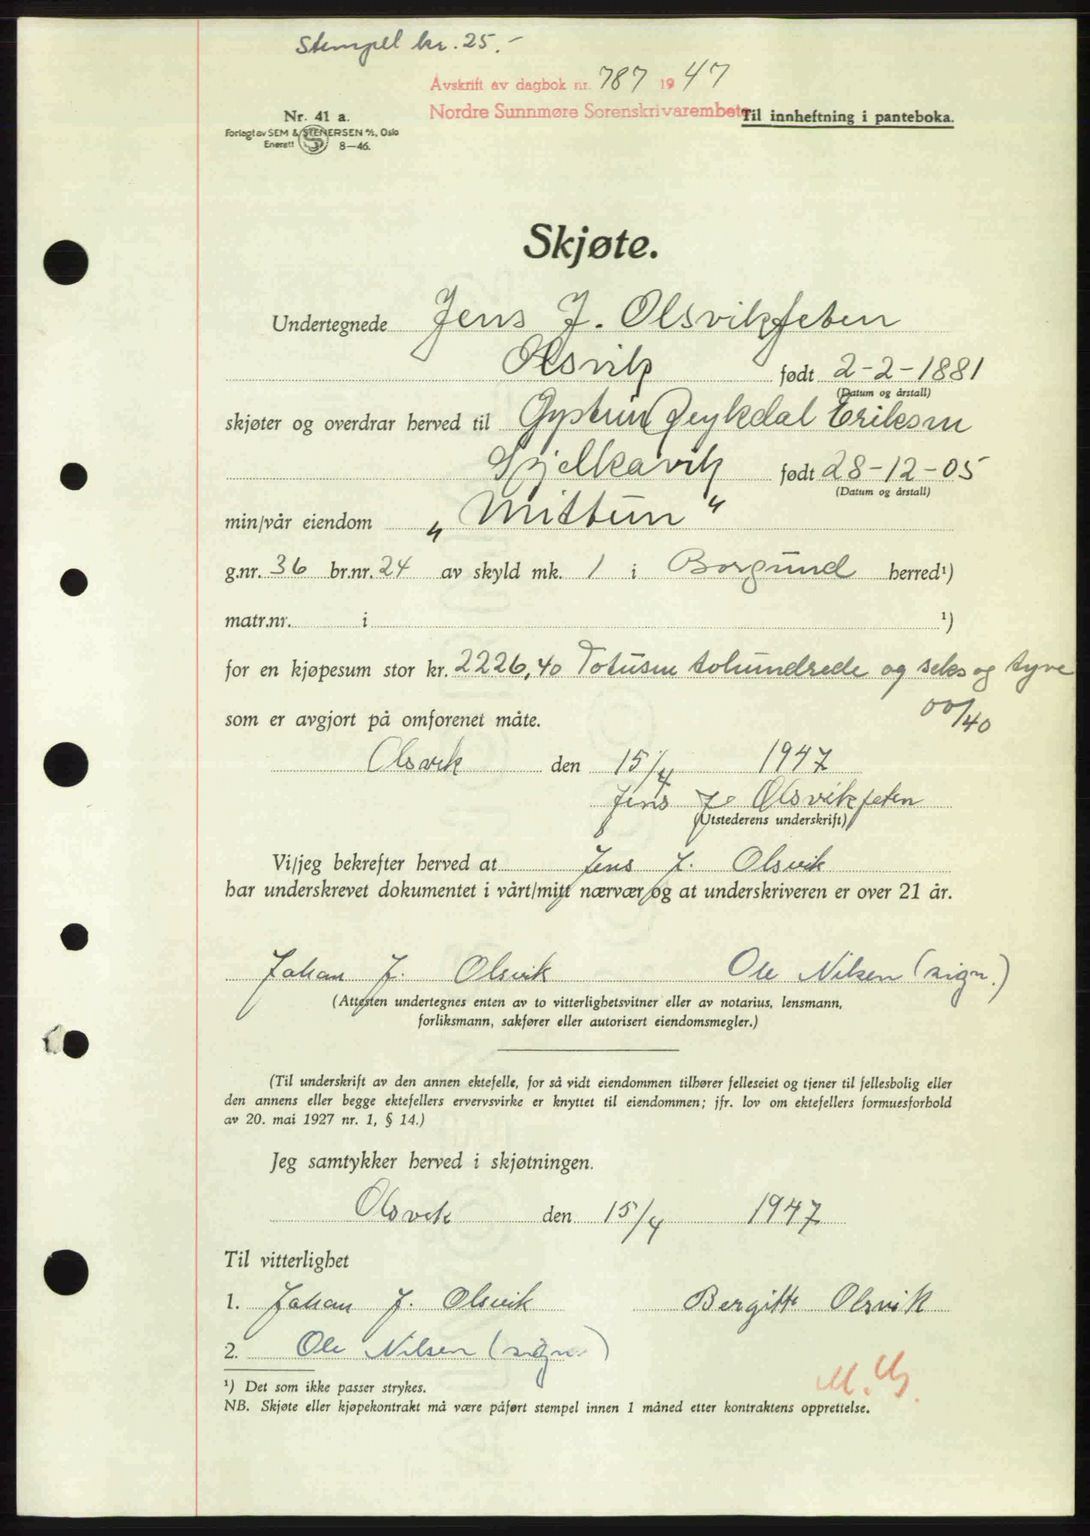 Stempel kr. 25.-
Avskrift av dagbok nr. 787 1947
Nordre Sunnmøre Sorenskrivarembete
Til innheftning i panteboka.
Nr. 41 a.
Forlagt av SEM & STENERSEN A/S, Oslo
Enerett 8-46.
Skjøte.
Undertegnede Jens J. Olsvikfeten
Olsvik født 2-2-1881
(Datum og årstall)
skjøter og overdrar herved til Eriksen
Spjelkavik født 28-12-05
(Datum og årstall)
min/vår eiendom „Mittun"
g.nr. 36 br.nr. 24 av skyld mk. 1 i Borgund herred¹)
matr.nr. i ¹)
for en kjøpesum stor kr. 2226,40 Totusen tohundrede og seks og tyve
00/40
som er avgjort på omforenet måte.
Olsvik den 15/4 1947
Jens J. Olsvikfeten
(Utstederens underskrift)
Vi/jeg bekrefter herved at Jens J. Olsvik
har underskrevet dokumentet i vårt/mitt nærvær og at underskriveren er over 21 år.
Johan J. Olsvik Ole Nilsen (sign.)
(Attesten undertegnes enten av to vitterlighetsvitner eller av notarius, lensmann,
forliksmann, sakfører eller autorisert eiendomsmegler.)
(Til underskrift av den annen ektefelle, for så vidt eiendommen tilhører felleseiet og tjener til fellesbolig eller
den annens eller begge ektefellers ervervsvirke er knyttet til eiendommen; jfr. lov om ektefellers formuesforhold
av 20. mai 1927 nr. 1, § 14.)
Jeg samtykker herved i skjøtningen.
Olsvik den 15/4 1947
Til vitterlighet
1. Johan J. Olsvik Bergitte Olsvik
2. Ole Nilsen (sign.)
¹) Det som ikke passer strykes.
NB. Skjøte eller kjøpekontrakt må være påført stempel innen 1 måned etter kontraktens opprettelse.